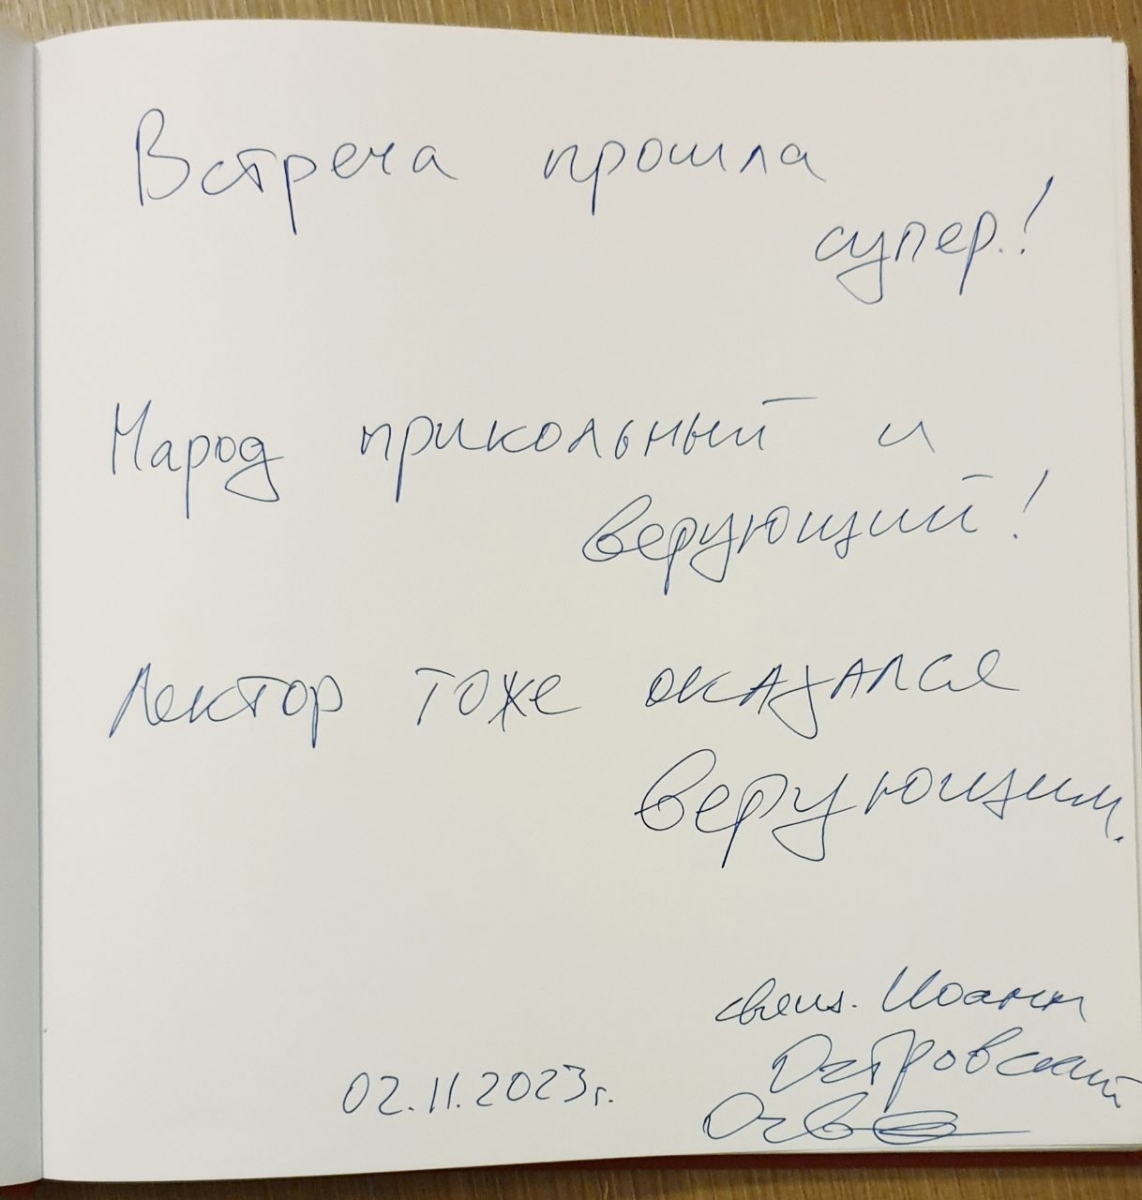 Встреча прошла
супер!
Народ прикольный и
верующий!
Лектор тоже оказался
верующим.
свящ. Иоанн
Островский
02.11.2023г.